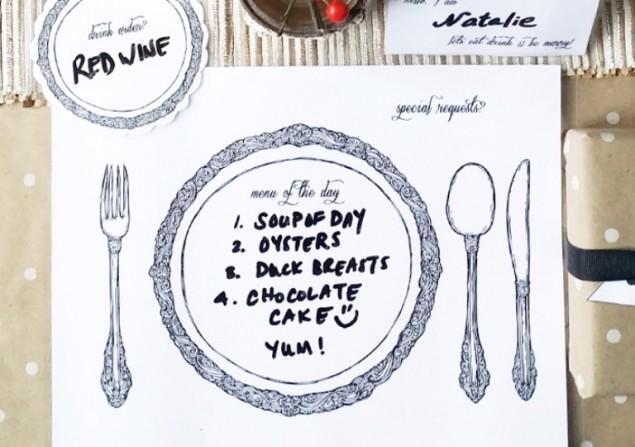 drink order?
RED WINE
Natalie
let's eat drink & be merry!
special requests?
menu of the day
1. SOUP OF DAY
2. OYSTERS
3. DUCK BREASTS
4. CHOCOLATE
CAKE
YUM!